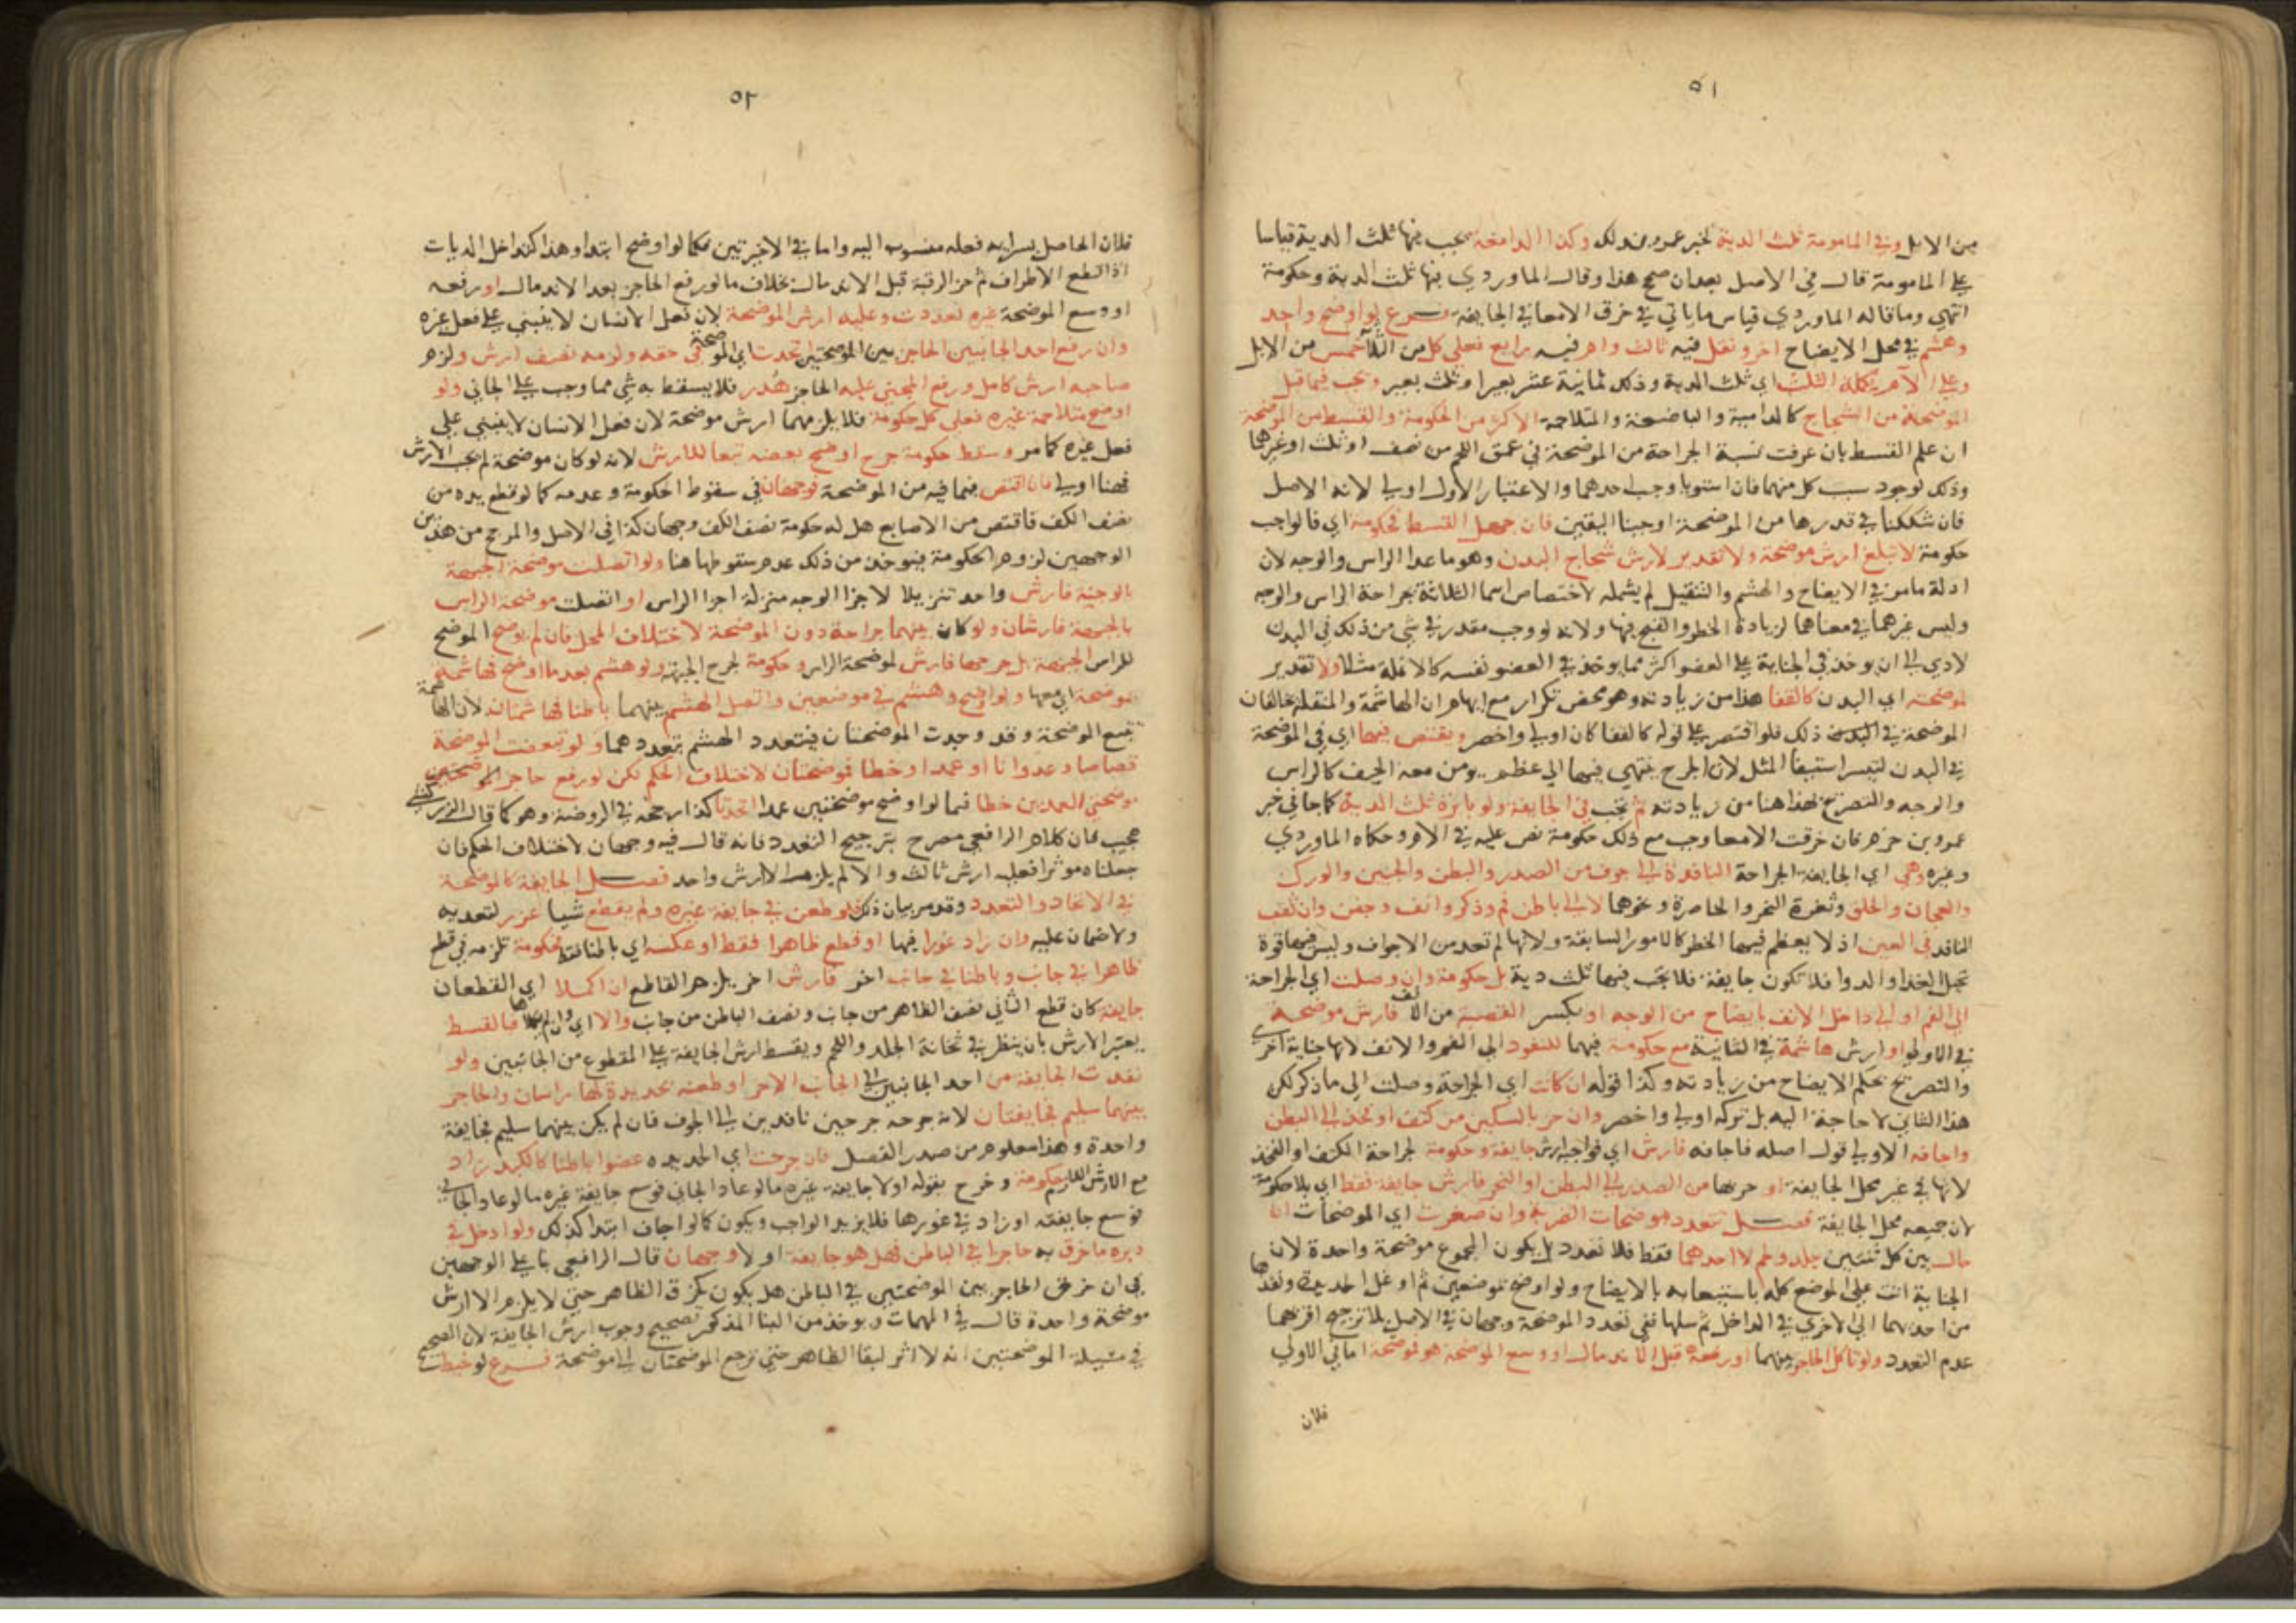 ٥١
من الابل وفي المامومة ثلث الدية لخبر عمرو بذلك وكذا الدامغة يجب فيها ثلث الدية قياسا
على المامومة قال في الاصل بعد ان صحح هذا وقال الماوردي فيها ثلث الدية وحكومة
انتهي وما قاله الماوردي قياس ما ياتي في خرق الامعا في الجايفة فرع لو اوضح واحد
وهشم في محل الايضاح اخر ونقل فيه ثالث وام فيه رابع فعلي كل من الثلاثة خمس من الابل
وعلي الآم تكملة الثلث اي ثلث الدية وذلك ثمانية عشر بعيرا وثلث بعير ويجب فيما قبل
الموضحة من الشجاج كالدامية والباضعة والمتلاحمة الاكثر من الحكومة والقسط من الموضحة
ان علم القسط بان عرفت نسبة الجراحة من الموضحة في عمق اللحم من نصف او ثلث او غيرهما
وذلك لوجود سبب كل منهما فان استويا وجب احدهما والاعتبار الاول اولي لانه الاصل
فان شككنا في قدرها من الموضحة اوجبنا اليقين فان جهل القسط فحكومة اي فالواجب
حكومة لا تبلغ ارش موضحة ولا تقدير لارش شجاج البدن وهو ما عدا الراس والوجه لان
ادلة ما مر في الايضاح والهشم والتنقيل لم يشمله لاختصاص اسما الثلاثة بجراحة الراس والوجه
وليس غيرهما في معناهما لزيادة الخطر والقبح فيها ولانه لو وجب مقدر في شي من ذلك في البدن
لادي الي ان يوخذ في الجناية علي العضو اكثر مما يوخذ في العضو نفسه كالانملة مثلا ولا تقدير
لموضحته اي البدن كالقفا هذا من زيادته وهو محض تكرار مع ايهام ان الهاشمة والمنقلة يخالفان
الموضحة في البدن ذلك فلو اقتصر علي قوله كالقفا كان اولي واخصر ويقتص فيها اي في الموضحة
في البدن لتيسر استيفا المثل لان الجرح ينتهي فيها الي عظم يومن معه الحيف كالراس
والوجه والتصريح بهذا هنا من زيادته ثم يجب في الجايفة ولو بابرة ثلث الدية كما جا في خبر
عمرو بن حزم فان خرقت الامعا وجب مع ذلك حكومة نص عليه في الام وحكاه الماوردي
وغيره وهي اي الجايفة الجراحة النافذة الي جوف من الصدر والبطن والجنبين والورك
والعجان والحلق وثغرة النحر والخاصرة ونحوهما لا الي باطن فم وذكر وانف وجفن وان ثقب
النافذ في العين اذ لا يعظم فيها الخطر كالامور السابقة ولانها لم تعد من الاجواف وليس فيها قوة
تحيل الغذا والدوا فلا تكون جايفة فلا يجب فيها ثلث دية بل حكومة وان وصلت اي الجراحة
الي الفم او الي داخل الانف بايضاح من الوجه او بكسر القصبة من الانف فارش موضحة
في الاولي او ارش هاشمة في الثانية مع حكومة فيهما للنفوذ الي الفم والانف لانها جناية اخري
والتصريح بحكم الايضاح من زيادته وكذا قوله ان كانت اي الجراحة وصلت الي ما ذكر لكن
هذا الثاني لا حاجة اليه بل تركه اولي واخصر وان حز بالسكين من كتف او فخذ الي البطن
واجافه الاولي قول اصله فاجافه فارش اي فواجبه ارش جايفة وحكومة لجراحة الكتف او الفخذ
لانها في غير محل الجايفة او حزها من الصدر الي البطن او النحر فارش جايفة فقط اي بلا حكومة
لان جميعه محل الجايفة فصل تتعدد موضحات الفر وان صغرت اي الموضحات ان
حال بين كل ثنتين جلد ولحم لا احدهما فقط فلا تعدد بل يكون المجموع موضحة واحدة لان
الجناية اتت علي الموضع كله باستيعابه بالايضاح ولو اوضح موضعين ثم اوغل الحديدة ونفذها
من احدهما الي الاخري في الداخل ثم سلها ففي تعدد الموضحة وجهان في الاصل بلا ترجيح اقربهما
عدم التعدد ولو تاكل الحاجز بينهما او رفعه قبل الاندمال او وسع الموضحة هو فموضحة اما في الاولي
فلان
٥٢
فلان الحاصل بسرايه فعله منسوب اليه واما في الاخيرتين فكما لو اوضح ابتدا وهذا كتداخل الديات
اذا قطع الاطراف ثم حز الرقبة قبل الاندمال بخلاف ما لو رفع الحاجز بعد الاندمال او رفعه
او وسع الموضحة غيره تعددت وعليه ارش الموضحة لان فعل الانسان لا ينبني علي فعل غيره
وان رفع احد الجانيين الحاجز بين الموضحتين اتحدت اي الموضحة في حقه ولزمه نصف ارش ولزم
صاحبه ارش كامل ورفع المجني عليه الحاجز هُدر فلا يسقط به شي مما وجب علي الجاني ولو
اوضح متلاحمة غيره فعلي كل حكومة فلا يلزمهما ارش موضحة لان فعل الانسان لا ينبني علي
فعل غيره كما مر وسقط حكومة جرح اوضح بعضه تبعا للارش لانه لو كان موضحة لم يجب الا ارش
فهنا اولي فان اقتص فيما فيه من الموضحة فوجهان في سقوط الحكومة وعدمه كما لو قطع يده من
نصف الكف فاقتص من الاصابع هل له حكومة نصف الكف وجهان كذا في الاصل والمرجح من هذين
الوجهين لزوم الحكومة فيوخذ من ذلك عدم سقوطها هنا ولو اتصلت موضحة الجبهة
بالوجنة فارش واحد تنزيلا لاجزا الوجه منزلة اجزا الراس او اتصلت موضحة الراس
بالجبهة فارشان ولو كان بينهما جراحة دون الموضحة لاختلاف المحل فان لم يوضح الموضح
للراس الجبهة بل جرحها فارش لموضحة الراس وحكومة لجرح الجبهة ولو هشم بعد ما اوضح فهاشمة
موضحة اي معها ولو اوضح وهشم في موضعين واتصل الهشم بينهما باطنا فهاشمتان لان الهاشمة
تتبع الموضحة وقد وجدت الموضحتان فيتعدد الهشم بتعددهما ولو تبعضت الموضحة
قصاصا وعدوانا او عمدا وخطا فموضحتان لاختلاف الحكم لكن لو رفع حاجز الموضحتين
موضحتي العمد بين خطا فيما لو اوضح موضحتين عمدا اتحدتا كذا رجحه في الروضة وهو كما قال الزركشي
عجيب فان كلام الرافعي مصرح بترجيح التعدد فانه قال فيه وجهان لاختلاف الحكم فان
جعلناه موثرا فعليه ارش ثالث والا لم يلزمه الا ارش واحد فصل الجايفة كالموضحة
في الاتحاد والتعدد وقد مر بيان ذلك فلو طعن في جايفة غيره ولم يقطع شيا عزر لتعديه
ولا ضمان عليه وان زاد غورا فيها او قطع ظاهرا فقط او عكسه اي باطنا فقط فحكومة تلزمه في قطع
ظاهرا في جانب وباطنا في جانب اخر فارش اخر يلزم القاطع ان اكملا اي القطعان
جايفة كان قطع الثاني نصف الظاهر من جانب ونصف الباطن من جانب والا اي وان لم يكملاها فبالقسط
يعتبر الارش بان ينظر في ثخانة الجلد واللحم ويقسط ارش الجايفة علي المقطوع من الجانبين ولو
نفذت الجايفة من احد الجانبين الي الجانب الاخر او طعنه بحديدة لها راسان والحاجز
بينهما سليم فجايفتان لانه جرحه جرحين نافذين الي الجوف فان لم يكن بينهما سليم فجايفة
واحدة وهذا معلوم من صدر الفصل فان جرحت اي الحديده عضوا باطنا كالكبد زاد
مع الارش اللازم حكومة وخرج بقوله اولا جايفة غيره ما لو عاد الجاني فوسع جايفة غيره ما لو عاد الجاني
فوسع جايفته او زاد في غورها فلا يزيد الواجب ويكون كما لو اجاف ابتدا كذلك ولو ادخل في
دبره ما خرق به حاجزا في الباطن فهل هو جايفة او لا وجهان قال الرافعي بنا علي الوجهين
في ان خرق الحاجز بين الموضحتين في الباطن هل يكون كخرق الظاهر حتي لا يلزم الا ارش
موضحة واحدة قال في المهمات ويوخذ من البنا المذكور تصحيح وجوب ارش الجايفة لان الصحيح
في مسيلة الموضحتين انه لا اثر لبقا الظاهر حتي ترجع الموضحتان الي موضحة فرع لو خيطت